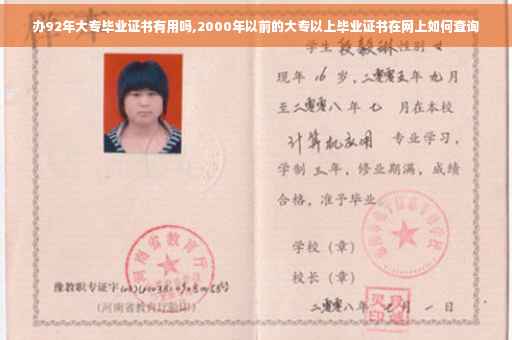 办92年大专毕业证书有用吗,2000年以前的大专以上毕业证书在网上如何查询
学生 段毅琳 性别 女
现年 16 岁，二零零五年 九月
至二零零八年 七 月在本校
计算机应用 专业学习，
学制 三年，修业期满，成绩
合格，准予毕业
学校（章）
校长（章）
二零零八年 七 月 一 日
河南省教育厅
豫教职专证字
（河南省教育厅验印）